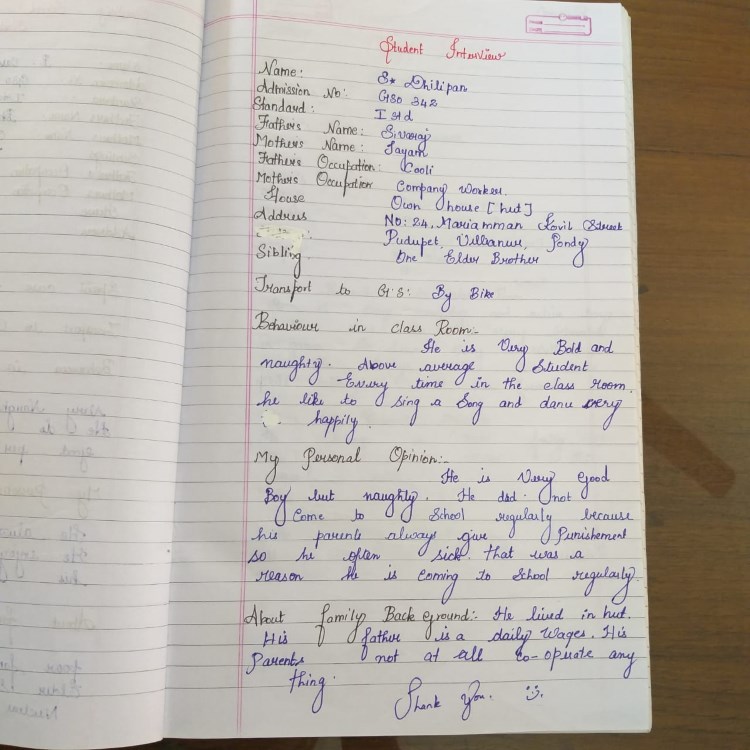 Student Interview
Name: S. Dhilipan
Admission No: GSO 342
Standard: I std
Fathers Name: Sivaraj
Mothers Name: Jayam
Fathers Occupation: Cooli
Mothers Occupation Company Worker.
House Own house [hut]
Address No: 24, Mariamman Kovil Street
Pudupet, Villianur, Pondy
Sibling One Elder Brother
Transport to G.S: By Bike
Behaviour in class Room:-
He is Very Bold and
naughty. Above average Student
Every time in the class room.
he like to sing a Song and danu very
happily.
My Personal Opinion:-
He is Very Good
Boy but naughty. He did not
Come to School regularly because
his parents always give Punishement
so he often sick. that was a
reason He is Coming to School regularly.
About family Back Ground:- He lived in hut.
His father is a daily Wages. His
Parents not at all co-opuate any
thing.
Thank You.